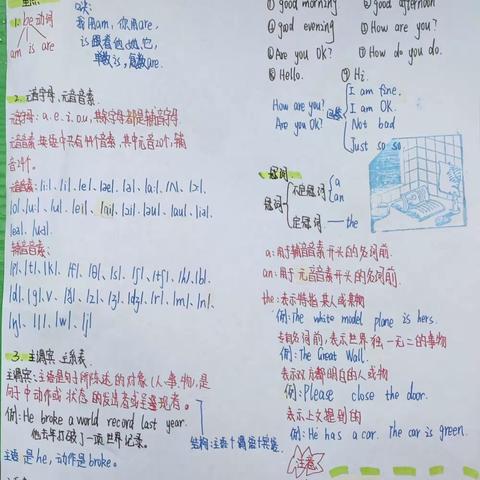 1. be动词
am is are
口诀:
我用am,你用are,
is跟着他她它,
单数is,复数are.
2. 元音字母、元音音素.
元音字母: a. e. i. o.u, 其余字母都是辅音字母
元音音素: 英语中共有48个音素,其中元音20个,辅
音28个.
元音音素: /i:/. /i/. /e/. /æ/. /ə/. /a:/. /ʌ/. /ɔ:/.
/ɔ/. /u:/. /u/. /ei/. /ai/. /ɔi/. /əu/. /au/. /iə/.
/eə/. /uə/.
辅音音素:
/p/. /t/. /k/. /f/. /θ/. /s/. /ʃ/. /tʃ/. /h/. /b/.
/d/. /g/. v. /ð/. /z/. /ʒ/. /dʒ/. /r/. /m/. /n/.
/ŋ/. /l/. /w/. /j/
3. 主谓宾、主系表.
主谓宾: 主语是句子所陈述的对象(人、事、物),是
句子中动作或状态的发出者或主遭现者。
例: He broke a world record last year.
他去年打破了一项世界记录。
主语是he,动作是broke。
结构: 主语+谓语+宾语.
① good morning ② good afternoon
③ good evening ④ How are you?
⑤ Are you OK? ⑥ How do you do.
⑧ Hello. ⑨ Hi.
How are you?
Are you OK?
回答
I am fine.
I am OK.
Not bad
Just so so
冠词
冠词
不定冠词
a
an
定冠词 — the
a: 用于辅音音素开头的名词前.
an: 用于元音音素开头的名词前.
the: 表示特指某人或某物
例: The white model plane is hers.
专有名词前,表示世界独一无二的事物
例: The Great Wall.
表示双方都明白的人或物
例: Please close the door.
表示上文提到的
例: He has a car. The car is green.
注意